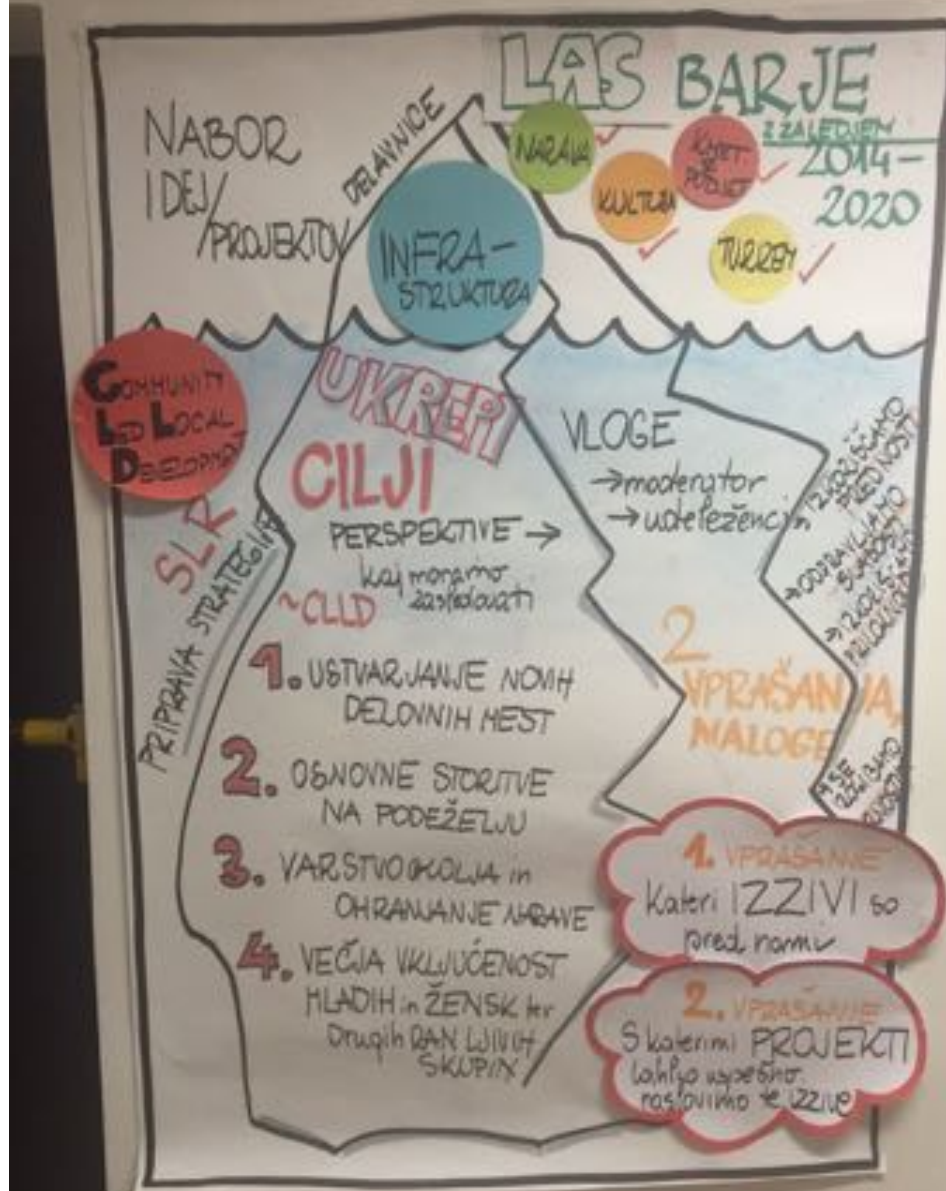 LAS BARJE
Z ZALEDJEM
2014-
2020
NABOR
IDEJ/
/PROJEKTOV
DELAVNICE
NARAVA
KULTURA
INFRA-
STRUKTURA
COMMUNITY
LED LOCAL
DEVELOPMENT
SLR
PRIPRAVA STRATEGIJE
UKREPI
CILJI
PERSPEKTIVE →
kaj moramo
zasledovati
~CLLD
1. USTVARJANJE NOVIH
DELOVNIH MEST
2. OSNOVNE STORITVE
NA PODEŽELJU
3. VARSTVO OKOLJA in
OHRANJANJE NARAVE
4. VEČJA VKLJUČENOST
MLADIH in ŽENSK ter
Drugih RANLJIVIH
SKUPIN
VLOGE
→ moderator
→ udeleženci
IZKORIŠČAMO
PREDNOSTI
→ ODPRAVLJAMO
SLABOSTI
2
VPRAŠANJA,
NALOGE
1. VPRAŠANJE
Kateri IZZIVI so
pred nami
2. VPRAŠANJE
S katerimi PROJEKTI
lahko uspešno
naslovimo te izzive